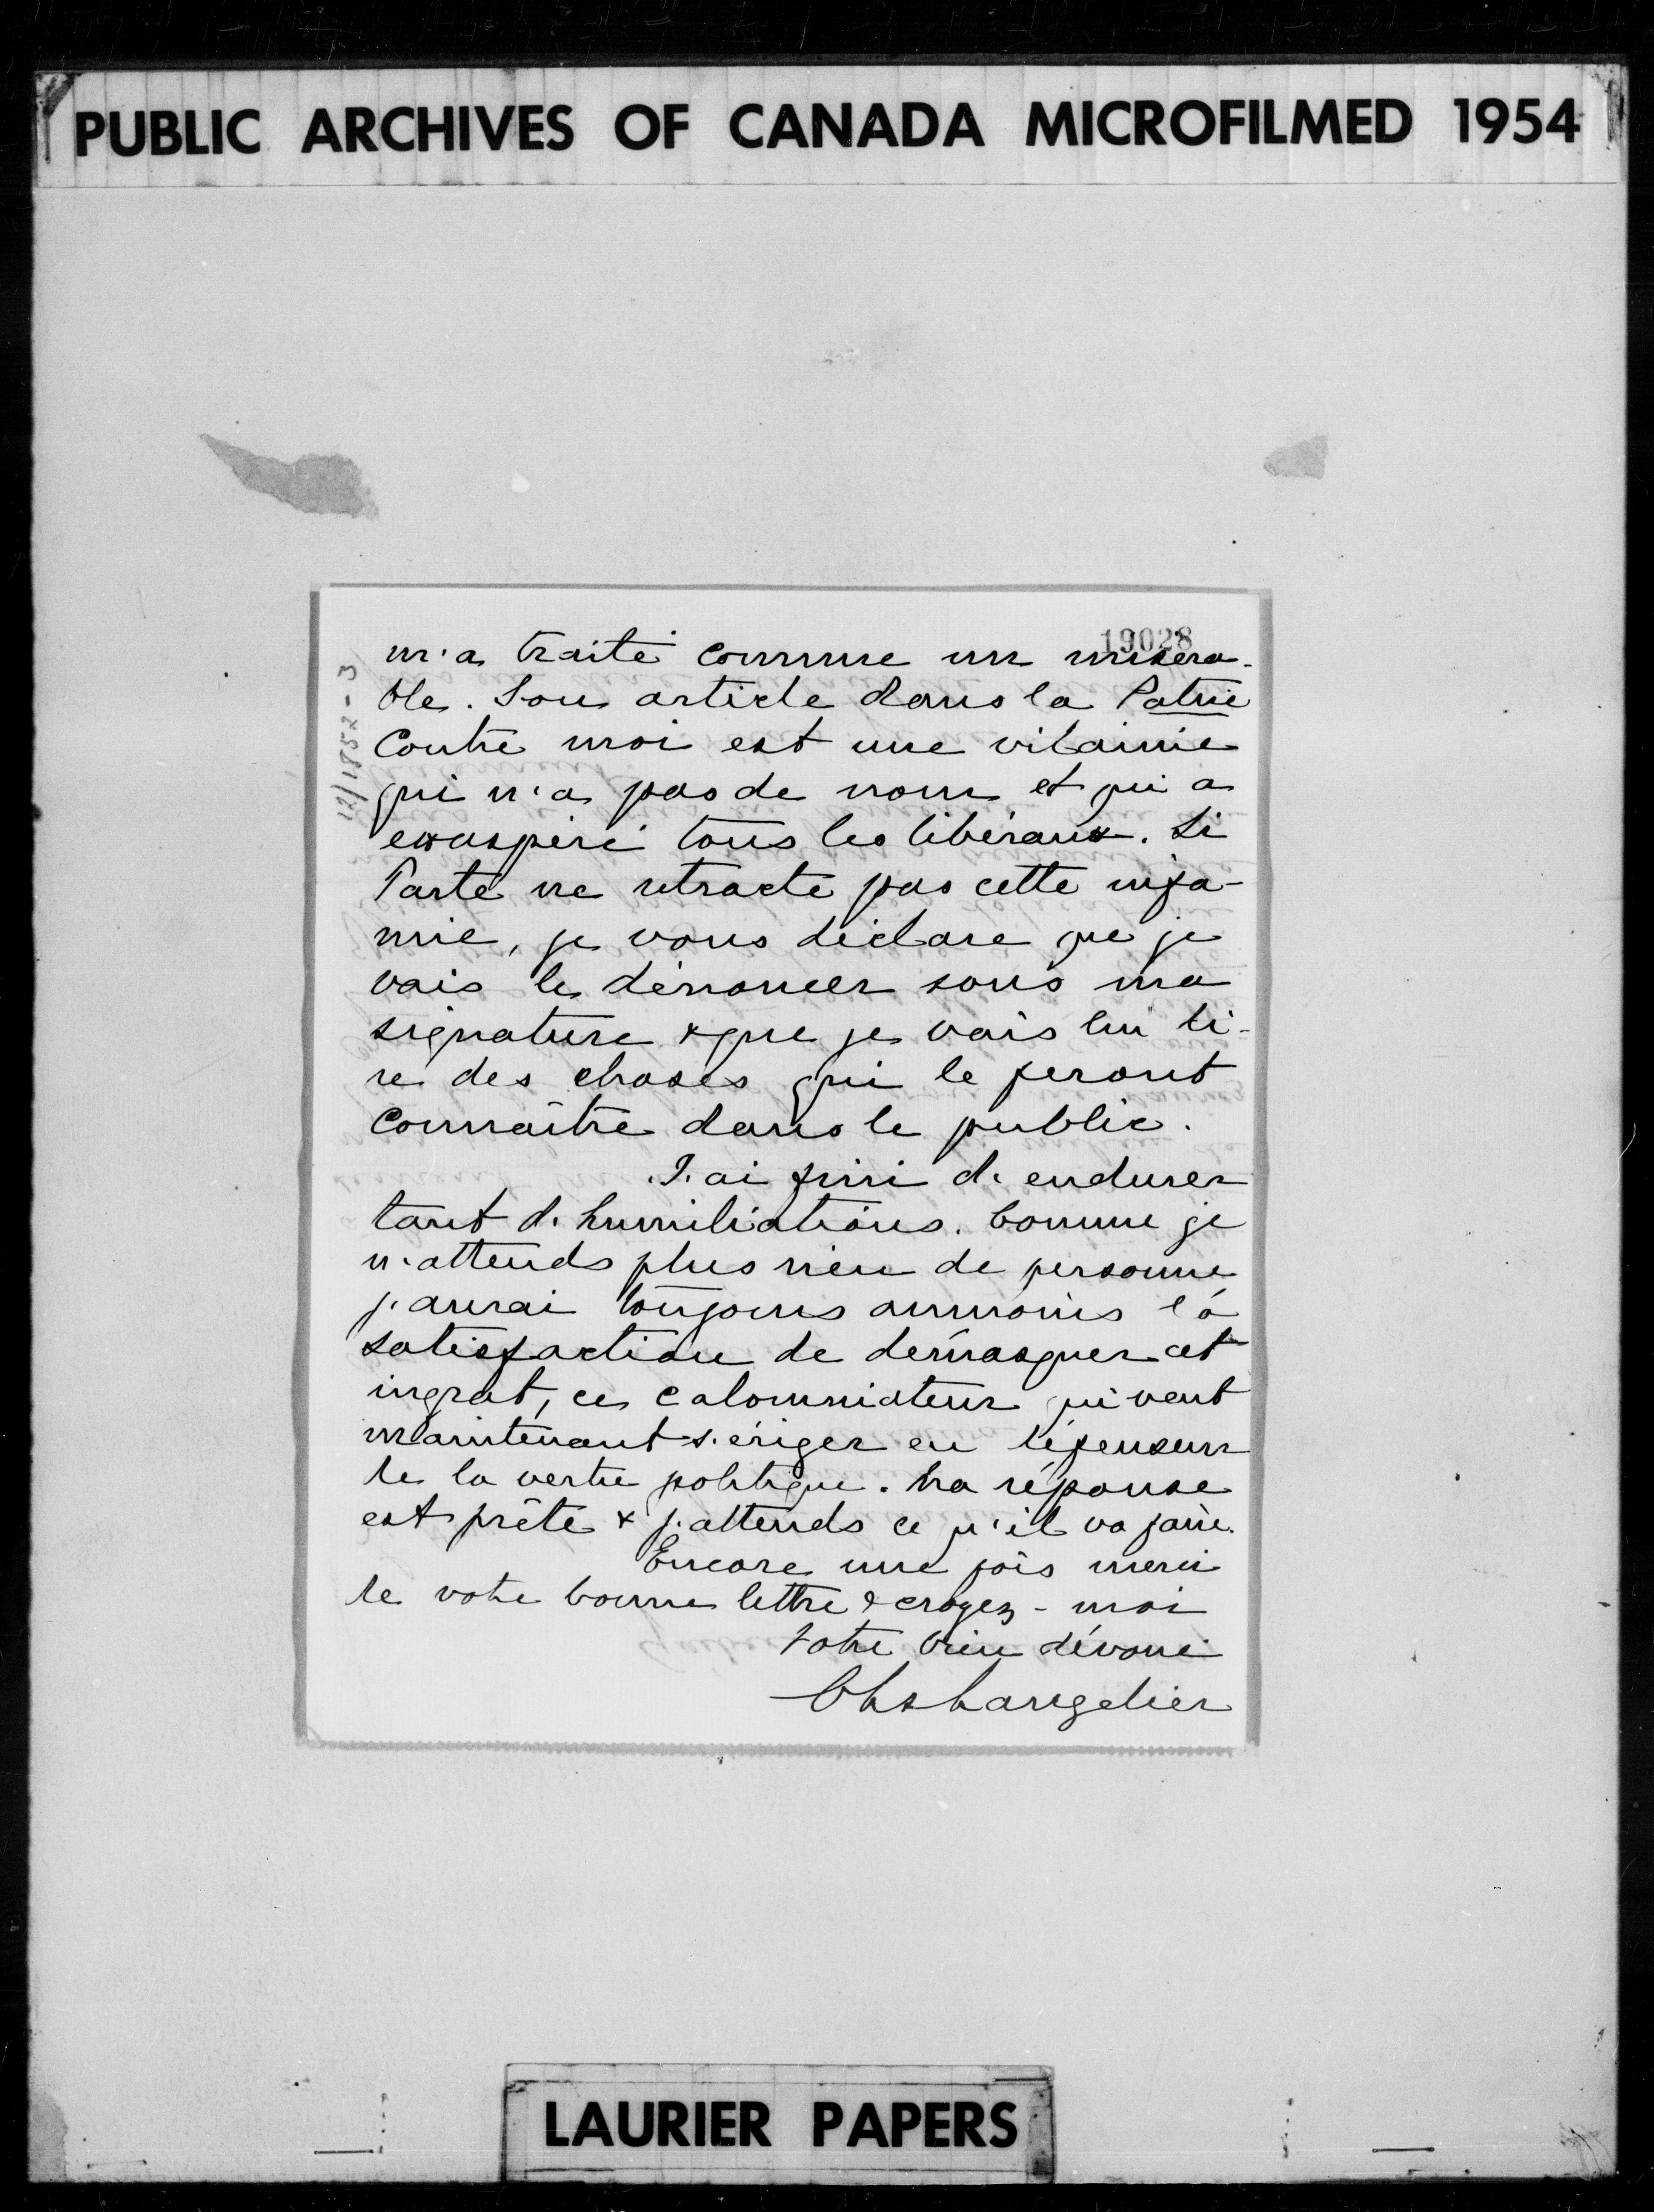 PUBLIC ARCHIVES OF CANADA MICROFILMED 1954
19028
m'a traité comme un miséra-
ble. Son article dans la Patrie
contre moi est une vilainie
qui n'a pas de nom et qui a
exaspéré tous les libéraux. Si
Tarte ne rétracte pas cette infa-
mie, je vous déclare que je
vais le dénoncer sous ma
signature & que je vais lui di-
re des choses qui le feront
connaître dans le public.
J'ai fini d'endurer
tant d'humiliations. Comme je
n'attends plus rien de personne
j'aurai toujours aumoins la
satisfaction de démasquer cet
ingrat, ce calomniateur qui veut
maintenant s'ériger en défenseur
de la vertu politique. Ma réponse
est prête & j'attends ce qu'il va faire.
Encore une fois merci
de votre bonne lettre & croyez-moi
Votre bien dévoué
Chs Langelier
LAURIER PAPERS